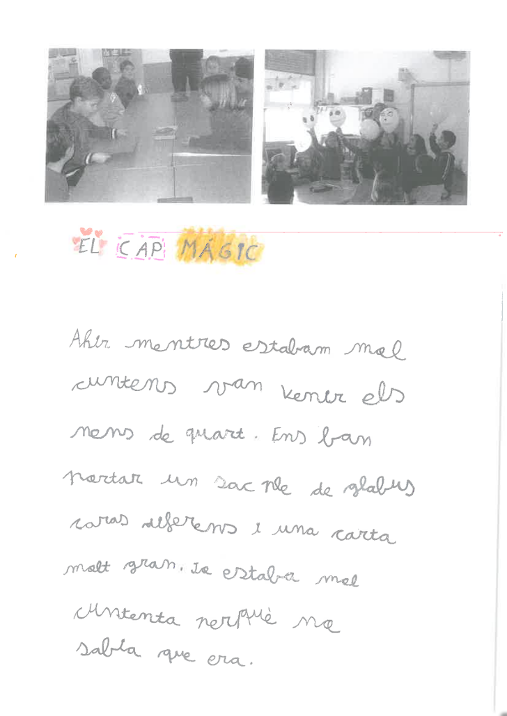 EL CAP MÁGIC
Ahir mentres estabam mol
cuntens van venir els
nens de quart. Ens ban
portar un sac ple de glabus
caras diferens i una carta
molt gran. Jo estaba mol
cuntenta perquè no
sabia que era.